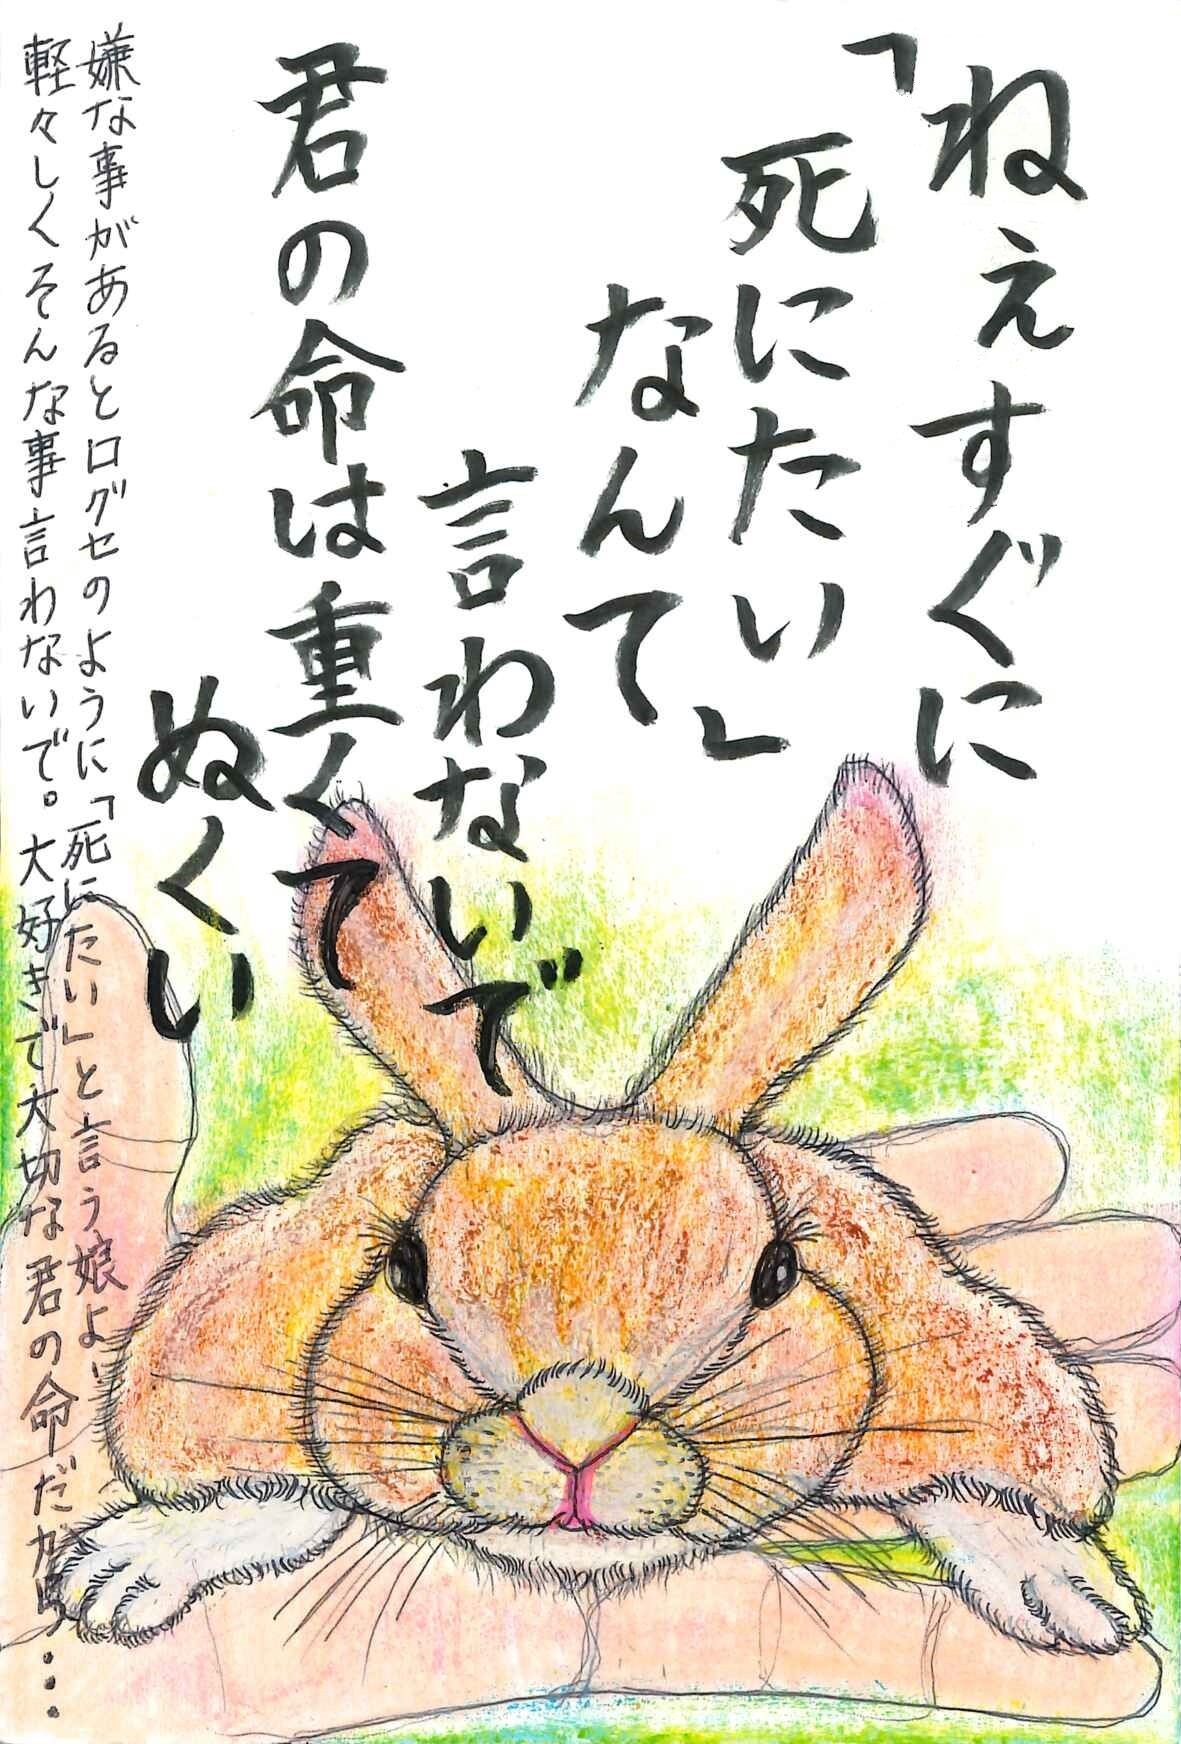 ねぇすぐに
「死にたい」
なんて
言わないで
君の命は重くて
ぬくい
嫌な事があると口グセのように「死にたい」と言う娘よ!
軽々しくそんな事言わないで。大好きで大切な君の命だから・・・